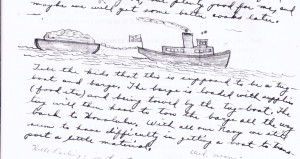 plenty good for me, and
maybe we will get some better ones later.
Tell the kids that this is supposed to be a tug
boat and barge. The barge is loaded with supplies
(food etc) and being towed by the tug boat. The
tug will then to tow the barge all the way
back to Honolulu. With all our Navy we still
seem to have difficulty in getting a boat to trans
port a little material.